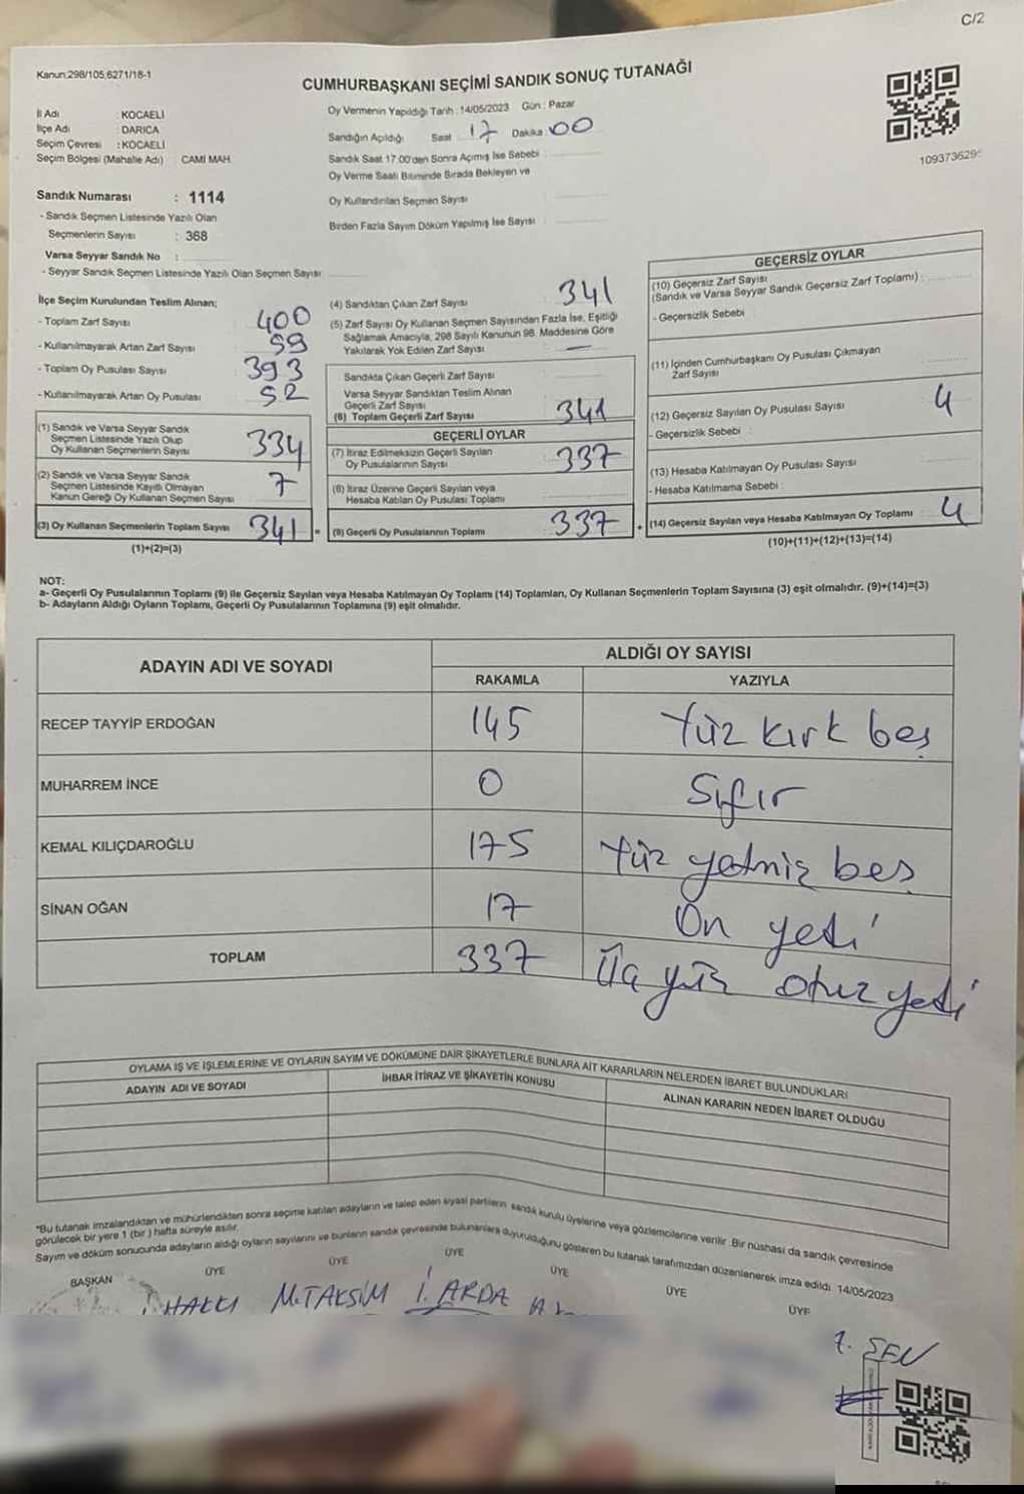 C/2
Kanun:298/105,6271/18-1
CUMHURBAŞKANI SEÇİMİ SANDIK SONUÇ TUTANAĞI
İl Adı : KOCAELİ
İlçe Adı : DARICA
Seçim Çevresi : KOCAELİ
Seçim Bölgesi (Mahalle Adı) CAMİ MAH.
Sandık Numarası : 1114
- Sandık Seçmen Listesinde Yazılı Olan
Seçmenlerin Sayısı : 368
Varsa Seyyar Sandık No :
- Seyyar Sandık Seçmen Listesinde Yazılı Olan Seçmen Sayısı
Oy Vermenin Yapıldığı Tarih :14/05/2023 Gün : Pazar
Sandığın Açıldığı Saat 17 Dakika 00
Sandık Saat 17.00'den Sonra Açımış İse Sebebi
Oy Verme Saati Bitiminde Sırada Bekleyen ve
Oy Kullandırılan Seçmen Sayısı
Birden Fazla Sayım Döküm Yapılmış İse Sayısı
109373629
İlçe Seçim Kurulundan Teslim Alınan;
- Toplam Zarf Sayısı 400
- Kullanılmayarak Artan Zarf Sayısı 59
- Toplam Oy Pusulası Sayısı 393
- Kullanılmayarak Artan Oy Pusulası 52
(1) Sandık ve Varsa Seyyar Sandık
Seçmen Listesinde Yazılı Olup
Oy Kullanan Seçmenlerin Sayısı 334
(2) Sandık ve Varsa Seyyar Sandık
Seçmen Listesinde Kayıtlı Olmayan
Kanun Gereği Oy Kullanan Seçmen Sayısı 7
(3) Oy Kullanan Seçmenlerin Toplam Sayısı 341 =
(1)+(2)=(3)
(4) Sandıktan Çıkan Zarf Sayısı 341
(5) Zarf Sayısı Oy Kullanan Seçmen Sayısından Fazla İse, Eşitliği
Sağlamak Amacıyla, 298 Sayılı Kanunun 98. Maddesine Göre
Yakılarak Yok Edilen Zarf Sayısı —
Sandıkta Çıkan Geçerli Zarf Sayısı
Varsa Seyyar Sandıktan Teslim Alınan
Geçerli Zarf Sayısı
(6) Toplam Geçerli Zarf Sayısı 341
GEÇERLİ OYLAR
(7) İtiraz Edilmeksizin Geçerli Sayılan
Oy Pusulalarının Sayısı 337
(8) İtiraz Üzerine Geçerli Sayılan veya
Hesaba Katılan Oy Pusulası Toplamı
(9) Geçerli Oy Pusulalarının Toplamı 337 +
GEÇERSİZ OYLAR
(10) Geçersiz Zarf Sayısı
(Sandık ve Varsa Seyyar Sandık Geçersiz Zarf Toplamı) :
- Geçersizlik Sebebi
(11) İçinden Cumhurbaşkanı Oy Pusulası Çıkmayan
Zarf Sayısı
(12) Geçersiz Sayılan Oy Pusulası Sayısı 4
- Geçersizlik Sebebi :
(13) Hesaba Katılmayan Oy Pusulası Sayısı
- Hesaba Katılmama Sebebi :
(14) Geçersiz Sayılan veya Hesaba Katılmayan Oy Toplamı : 4
(10)+(11)+(12)+(13)=(14)
NOT:
a- Geçerli Oy Pusulalarının Toplamı (9) ile Geçersiz Sayılan veya Hesaba Katılmayan Oy Toplamı (14) Toplamları, Oy Kullanan Seçmenlerin Toplam Sayısına (3) eşit olmalıdır. (9)+(14)=(3)
b- Adayların Aldığı Oyların Toplamı, Geçerli Oy Pusulalarının Toplamına (9) eşit olmalıdır.
ADAYIN ADI VE SOYADI ALDIĞI OY SAYISI
RAKAMLA YAZIYLA
RECEP TAYYİP ERDOĞAN 145 Yüz kırk beş
MUHARREM İNCE 0 Sıfır
KEMAL KILIÇDAROĞLU 175 Yüz yetmiş beş
SİNAN OĞAN 17 On yedi
TOPLAM 337 Üç yüz otuz yedi
OYLAMA İŞ VE İŞLEMLERİNE VE OYLARIN SAYIM VE DÖKÜMÜNE DAİR ŞİKAYETLERLE BUNLARA AİT KARARLARIN NELERDEN İBARET BULUNDUKLARI
ADAYIN ADI VE SOYADI İHBAR İTİRAZ VE ŞİKAYETİN KONUSU ALINAN KARARIN NEDEN İBARET OLDUĞU
"Bu tutanak imzalandıktan ve mühürlendikten sonra seçime katılan adayların ve talep eden siyasi partilerin sandık kurulu üyelerine veya gözlemcilerine verilir. Bir nüshası da sandık çevresinde
görülecek bir yere 1 (bir) hafta süreyle asılır.
Sayım ve döküm sonucunda adayların aldığı oyların sayılarını ve bunların sandık çevresinde bulunanlara duyurulduğunu gösteren bu tutanak tarafımızdan düzenlenerek imza edildi. 14/05/2023
BAŞKAN ÜYE ÜYE ÜYE ÜYE ÜYE ÜYE
HAKKI M.TAKSİM İ. ARDA
ŞEN